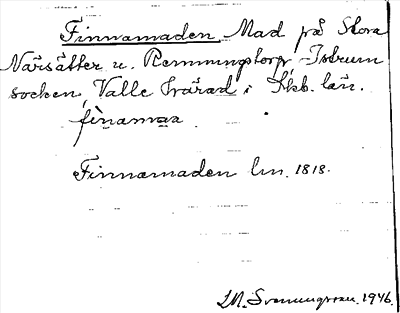 Finnamaden Mad på Stora
Närsätter u. Remmingstorp Istrum
socken Valle härad i Skb. län.
Finnamaden lm. 1818.
1946.